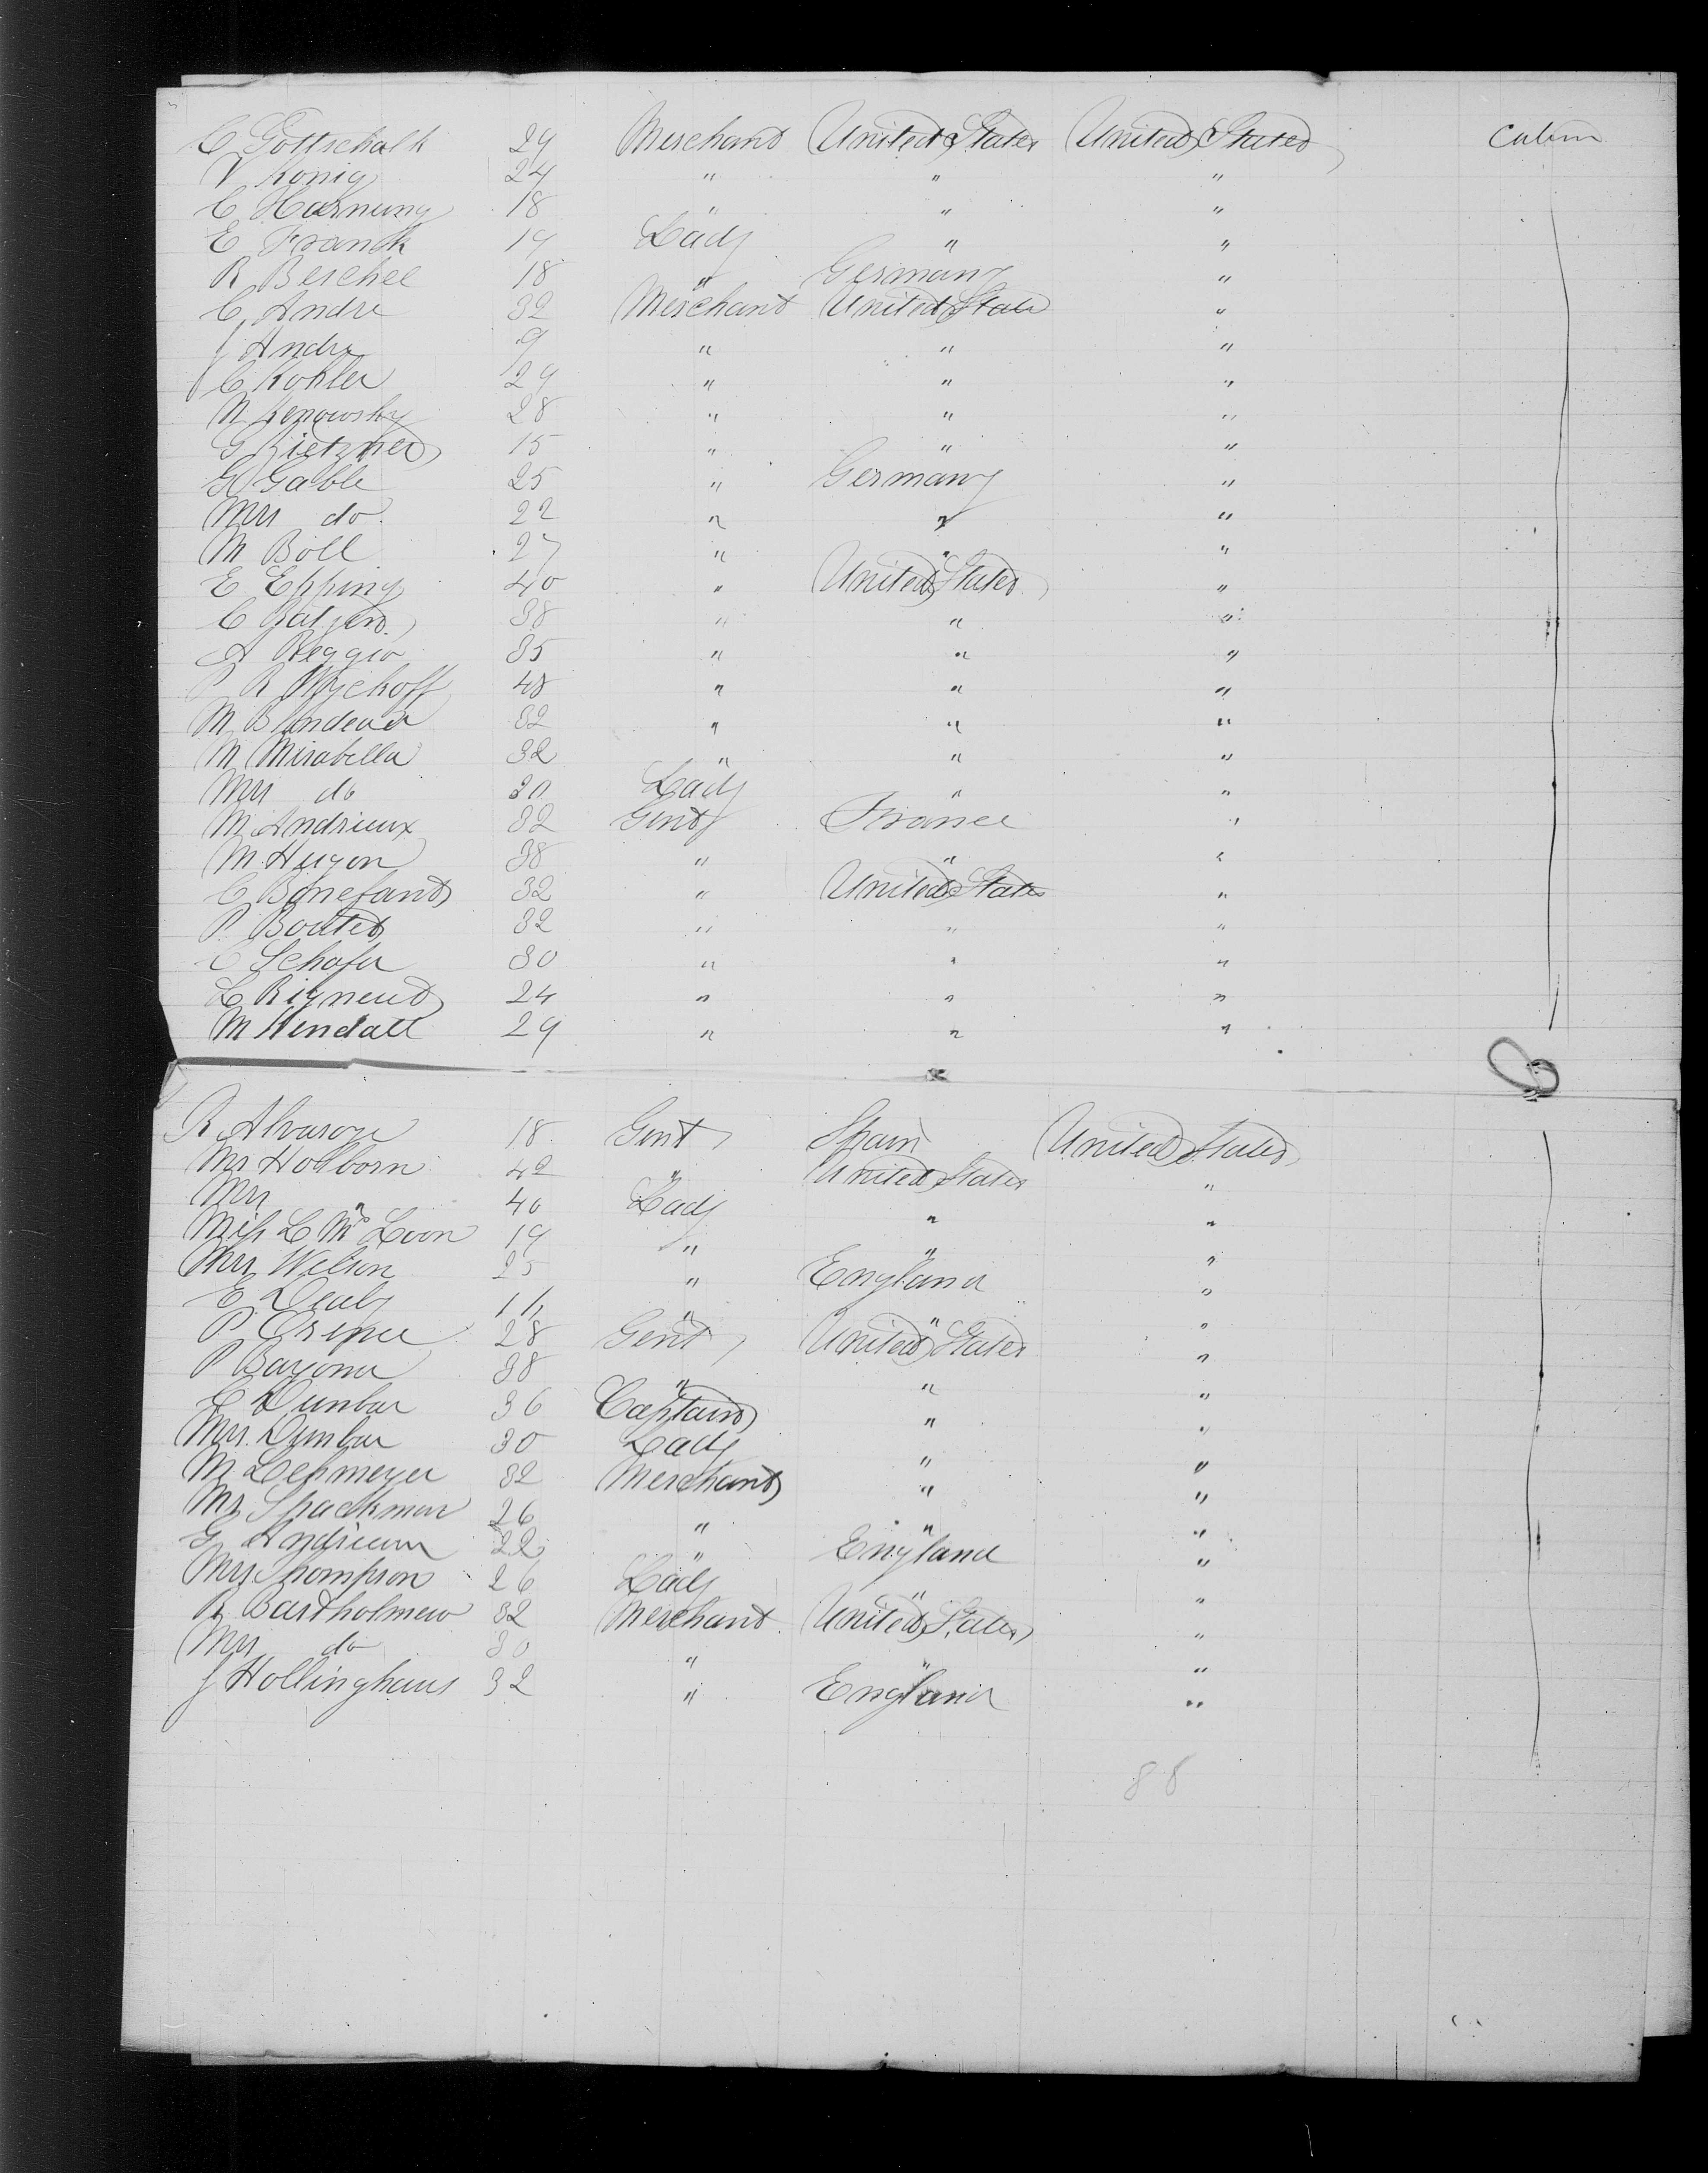 C Gottschalk 29 Merchant United States United States Cabin
V Konig 24 " " "
C Hornung 18 " " "
E Franck 19 Lady " "
R Berchel 18 " Germany "
C Andre 32 Merchant United State "
J Andre 9 " " "
C Kohler 29 " " "
N Kenowsky 28 " " "
G Zietzner 15 " " "
G Gable 25 " Germany "
Mrs do. 22 " " "
M Boll 27 " " "
E Epping 40 " United States "
C 38 " " "
A Reggio 35 " " "
P R Wyckoff 48 " " "
M 32 " " "
M Mirabella 32 " " "
Mrs do 30 Lady " "
M Andrieux 32 Gent France "
M. Hugon 38 " " "
C Bonefant 32 " United States "
P. Boutet 32 " " "
C Schafer 30 " " "
L Rigneud 24 " " "
M Kendall 29 " " "
R Alvaroze 18 Gent Spain United States
Mr Holborn 42 " United States "
Mrs " 40 Lady " "
Miss L Mc Loon 19 " " "
Mrs Wilson 25 " England "
E. Dealy 11 " " "
P. 28 Gent United States "
P Bayona 38 " " "
C Dunbar 36 Captain " "
Mrs. Dunbar 30 Lady " "
M Lehmeyer 32 Merchant " "
Mr Spackman 26 " " "
G Andrieum 22 " England "
Mrs Thompson 26 Lady " "
R Bartholmew 32 Merchant United States "
Mrs do 30 " " "
J Hollinghaus 32 " England "
88